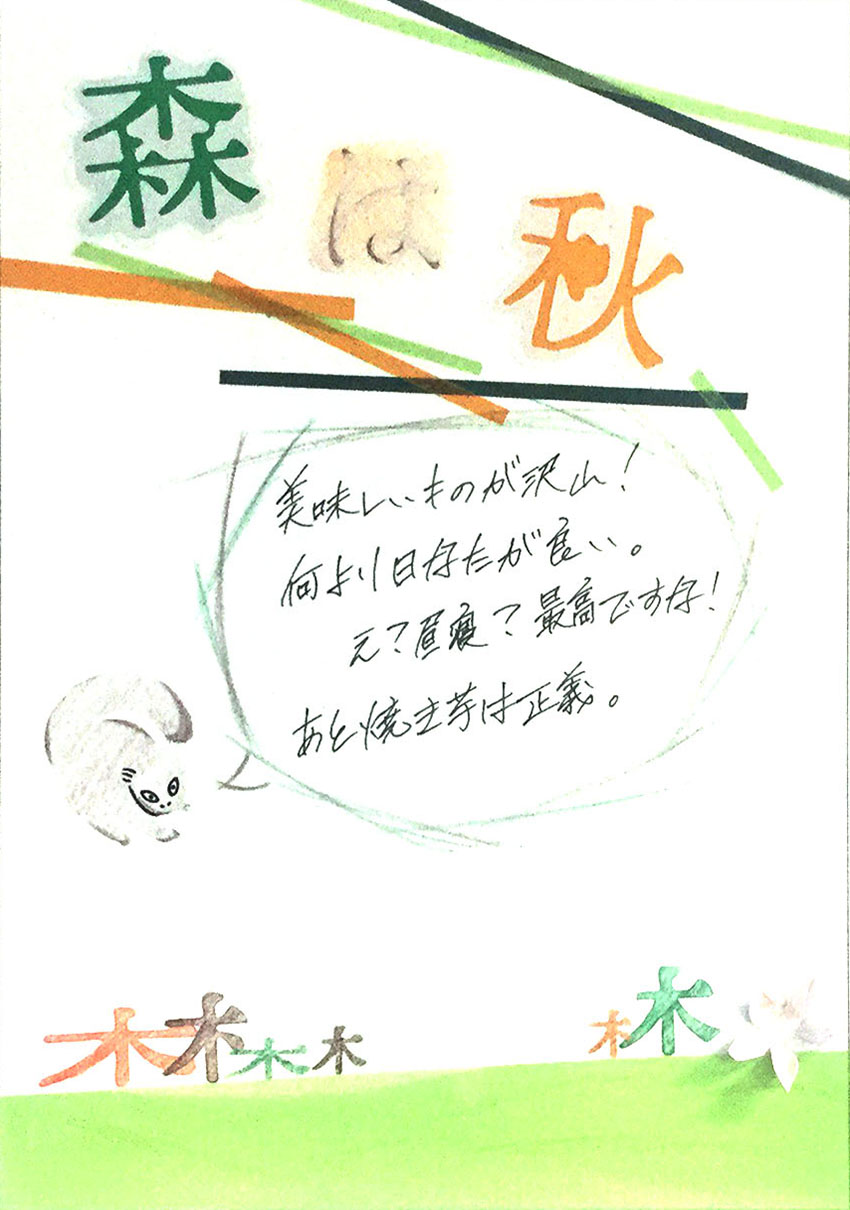 森は秋
美味しいものが沢山！
何より日なたが良い。
え？昼寝？最高ですな！
あと焼き芋は正義。
木木木木
木木